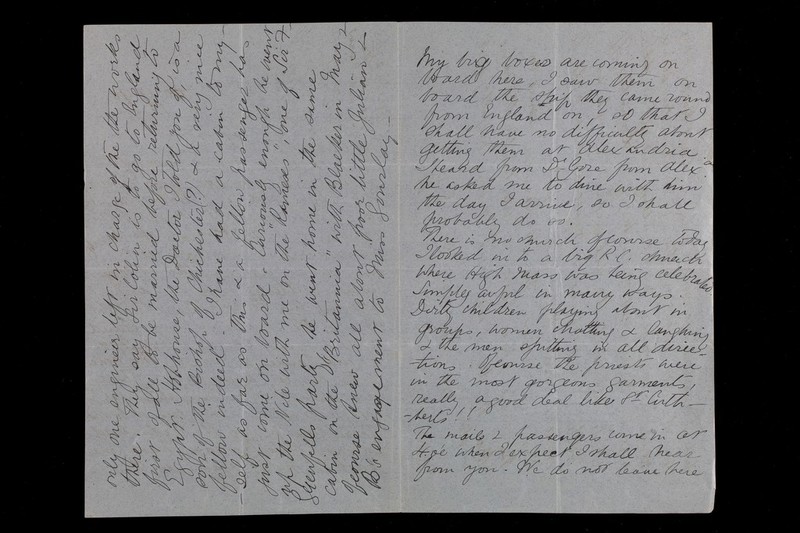 only one engineer left in charge of the the works
there. They say Sir Colin is to go to England
first of all to be married before returning to
Egypt. Hobhouse, the Doctor I told you of, is a
son of the Bishop of Chichester(?) & a very nice
fellow indeed. I have had a cabin to my-
-self as far as this & a fellow passenger has
just come on board. Curiously enough he went
up the Nile with me on the "Rameses", one of Sir F.
Grenfells party. he went home in the same
cabin in the "Britannia" with Blacker in May &
of course knew all about poor little Julian &
his engagement to Miss
My big boxes are coming on
board here, I saw them on
board the ship they came round
from England on, so that I
shall have no difficulty about
getting them at Alexandria
I heard from Dr. Gore from Alex:a
he asked me to dine with him
the day I arrive, so I shall
probably do so.
There is no church of course today
I looked in to a big R.C. church
where High Mass was being celebrated.
Simply awful in many ways.
Dirty children playing about in
groups, women chatting & laughing
& the men spitting in all direc-
-tions. Of course the priests were
in the most gorgeous garments,
really a good deal like St. Cuth-
-berts!!
The mails & passengers come in at
4. when I expect I shall hear
from you. We do not leave here